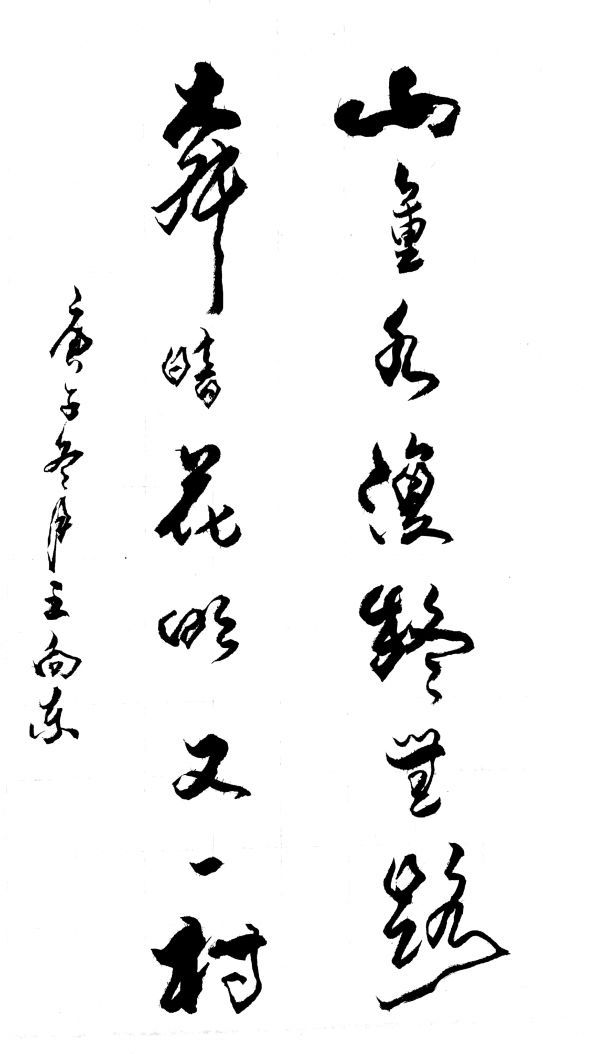 山重水復疑無路
柳暗花明又一村
庚子冬月王向东